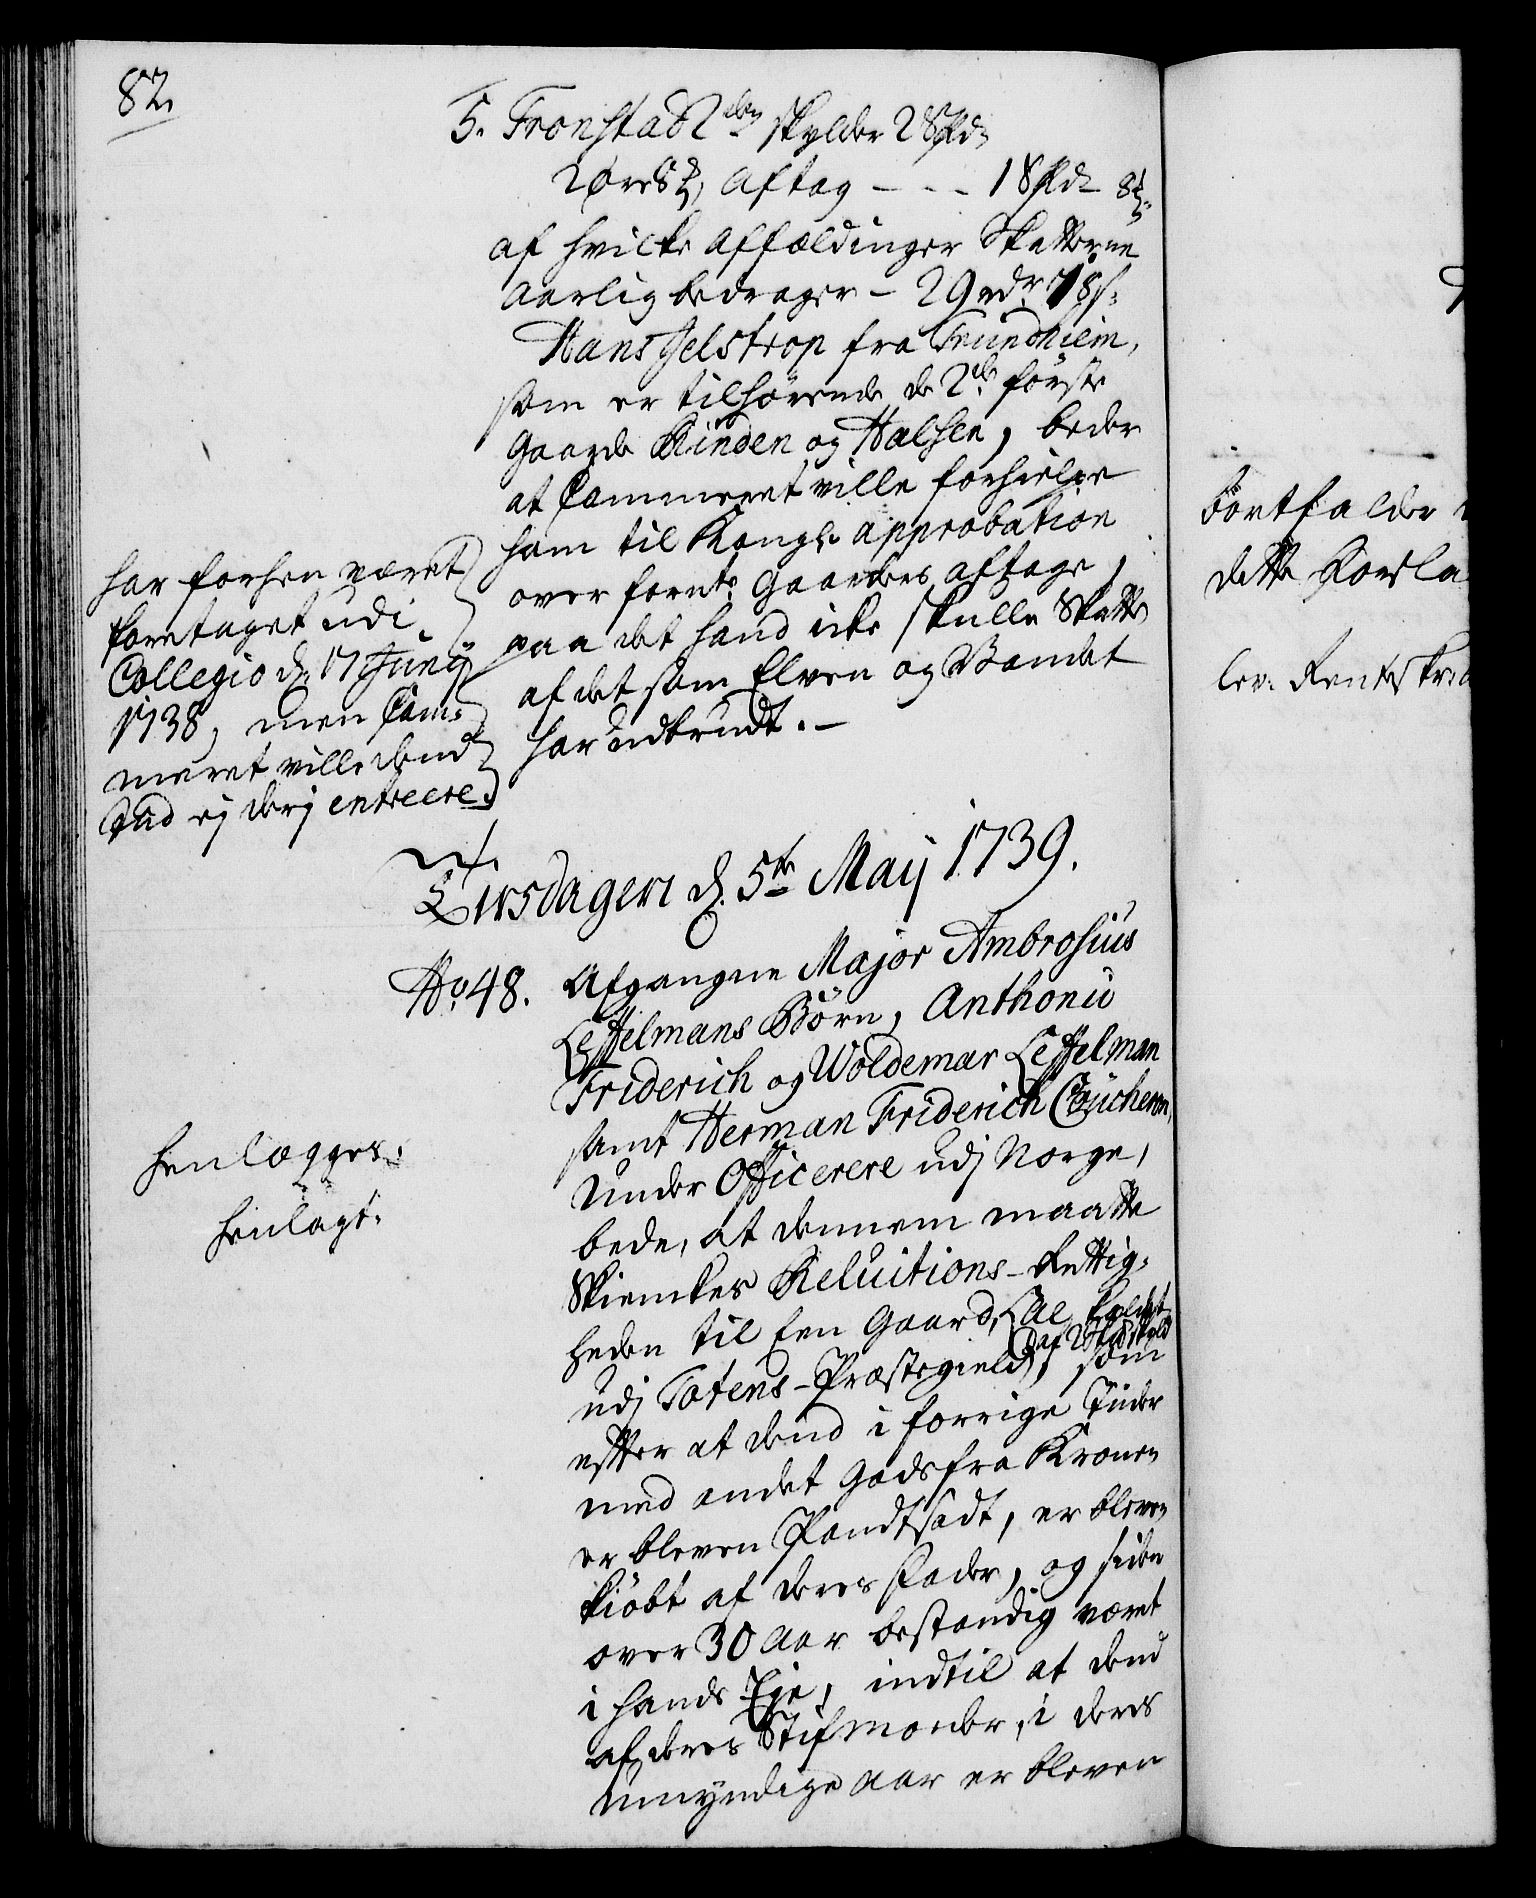 82.
5. Fronstad 2den skylder 2 Spd
2 øre 8 ₰, aftag - - - 1 Spd 8 ₰.
af hvilke affældinger Skatterne
aarlig bedrager - 29 rdr 18 s.
Hans Jelstrop fra Trundhiem,
som er tilhørende de 2de første
Gaarde Rinden og Halsen, beder
at Cammeret ville forhielpe
ham til Kongl. approbation
over fornte Gaarders aftage,
paa det hand icke skulle Skatte
af det som Elven og Vandet
har udbrudt. -
har forhen været
foretaget udi
Collegio d. 17 Junij
1738, men Cam-
meret ville dend
Tiid ej derj entreere.
Tirsdagen d. 5te Maij 1739.
No. 48. Afgangne Major Ambrosius
Leffelmans Børn, Anthoni
Friderich og Woldemar Leffelman
samt Herman Friderich
Under Officerere udj Norge,
bede, at dennem maatte
Skienkes Reluitions-Rettig-
heden til Een Gaard, Lae kaldet
af 2 Spd skyld
udj Totens-Præstegield, som
efter at dend i forrige Tiider
med andet Gods fra Kronen
er bleven Pandtsadt, er bleven
kiøbt af deres Fader, og siden
over 30 Aar bestandig været
i hands Eje, indtil at dend
af deres Stifmoeder, i deres
umyndige Aar er bleven
henlægges.
henlagt.
bortfalder
dette Forsla
lev. Renteskri